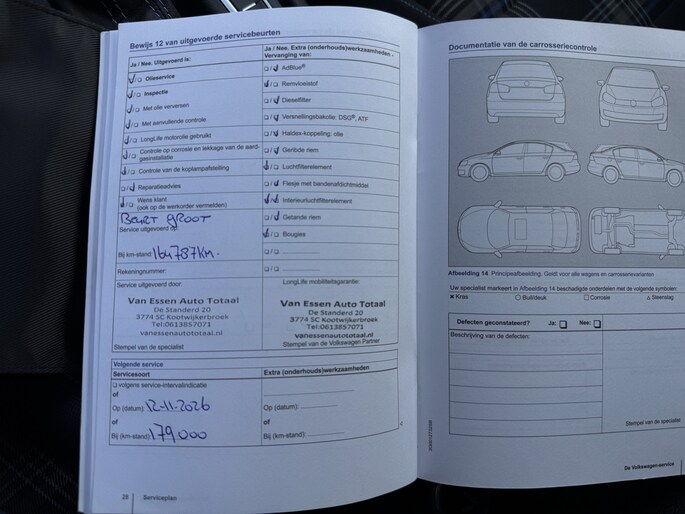 Bewijs 12 van uitgevoerde servicebeurten
Ja / Nee. Uitgevoerd is:
☑/☐ Olieservice
☑/☐ Inspectie
☑/☐ Met olie verversen
☑/☐ Met aanvullende controle
☑/☐ LongLife motorolie gebruikt
☑/☐ Controle op corrosie en lekkage van de aardgasinstallatie
☑/☐ Controle van de koplampafstelling
☐/☑ Reparatieadvies
☑/☐ Wens klant
(ook op de werkorder vermelden)
BART GROOT
Service uitgevoerd op:
Bij km-stand: 164787km.
Rekeningnummer:
Service uitgevoerd door:
VAN ESSEN AUTO TOTAAL
De Standerd 20
3774 SC Kootwijkerbroek
Tel:0613857071
vanessenautototaal.nl
Stempel van de specialist
Ja / Nee. Extra (onderhouds)werkzaamheden - Vervanging van:
☐/☑ AdBlue®
☑/☐ Remvloeistof
☐/☑ Dieselfilter
☐/☑ Versnellingsbakolie: DSG®, ATF
☐/☑ Haldex-koppeling: olie
☐/☑ Geribde riem
☑/☐ Luchtfilterelement
☐/☑ Flesje met bandenafdichtmiddel
☑/☐ Interieurluchtfilterelement
☐/☑ Getande riem
☑/☐ Bougies
☐/☐
☐/☐
LongLife mobiliteitsgarantie:
VAN ESSEN AUTO TOTAAL
De Standerd 20
3774 SC Kootwijkerbroek
Tel:0613857071
vanessenautototaal.nl
Stempel van de Volkswagen Partner
Volgende service
Servicesoort
☐ volgens service-intervalindicatie
of
Op (datum): 12-11-2026
of
Bij (km-stand): 179.000
Extra (onderhouds)werkzaamheden
Op (datum):
of
Bij (km-stand):
28 Serviceplan
Documentatie van de carrosseriecontrole
Afbeelding 14 Principeafbeelding. Geldt voor alle wagens en carrosserievarianten
Uw specialist markeert in Afbeelding 14 beschadigde onderdelen met de volgende symbolen:
✕ Kras ○ Buil/deuk □ Corrosie △ Steenslag
Defecten geconstateerd? Ja: ☐ Nee: ☐
Beschrijving van de defecten:
Stempel van de specialist
De Volkswagen-service